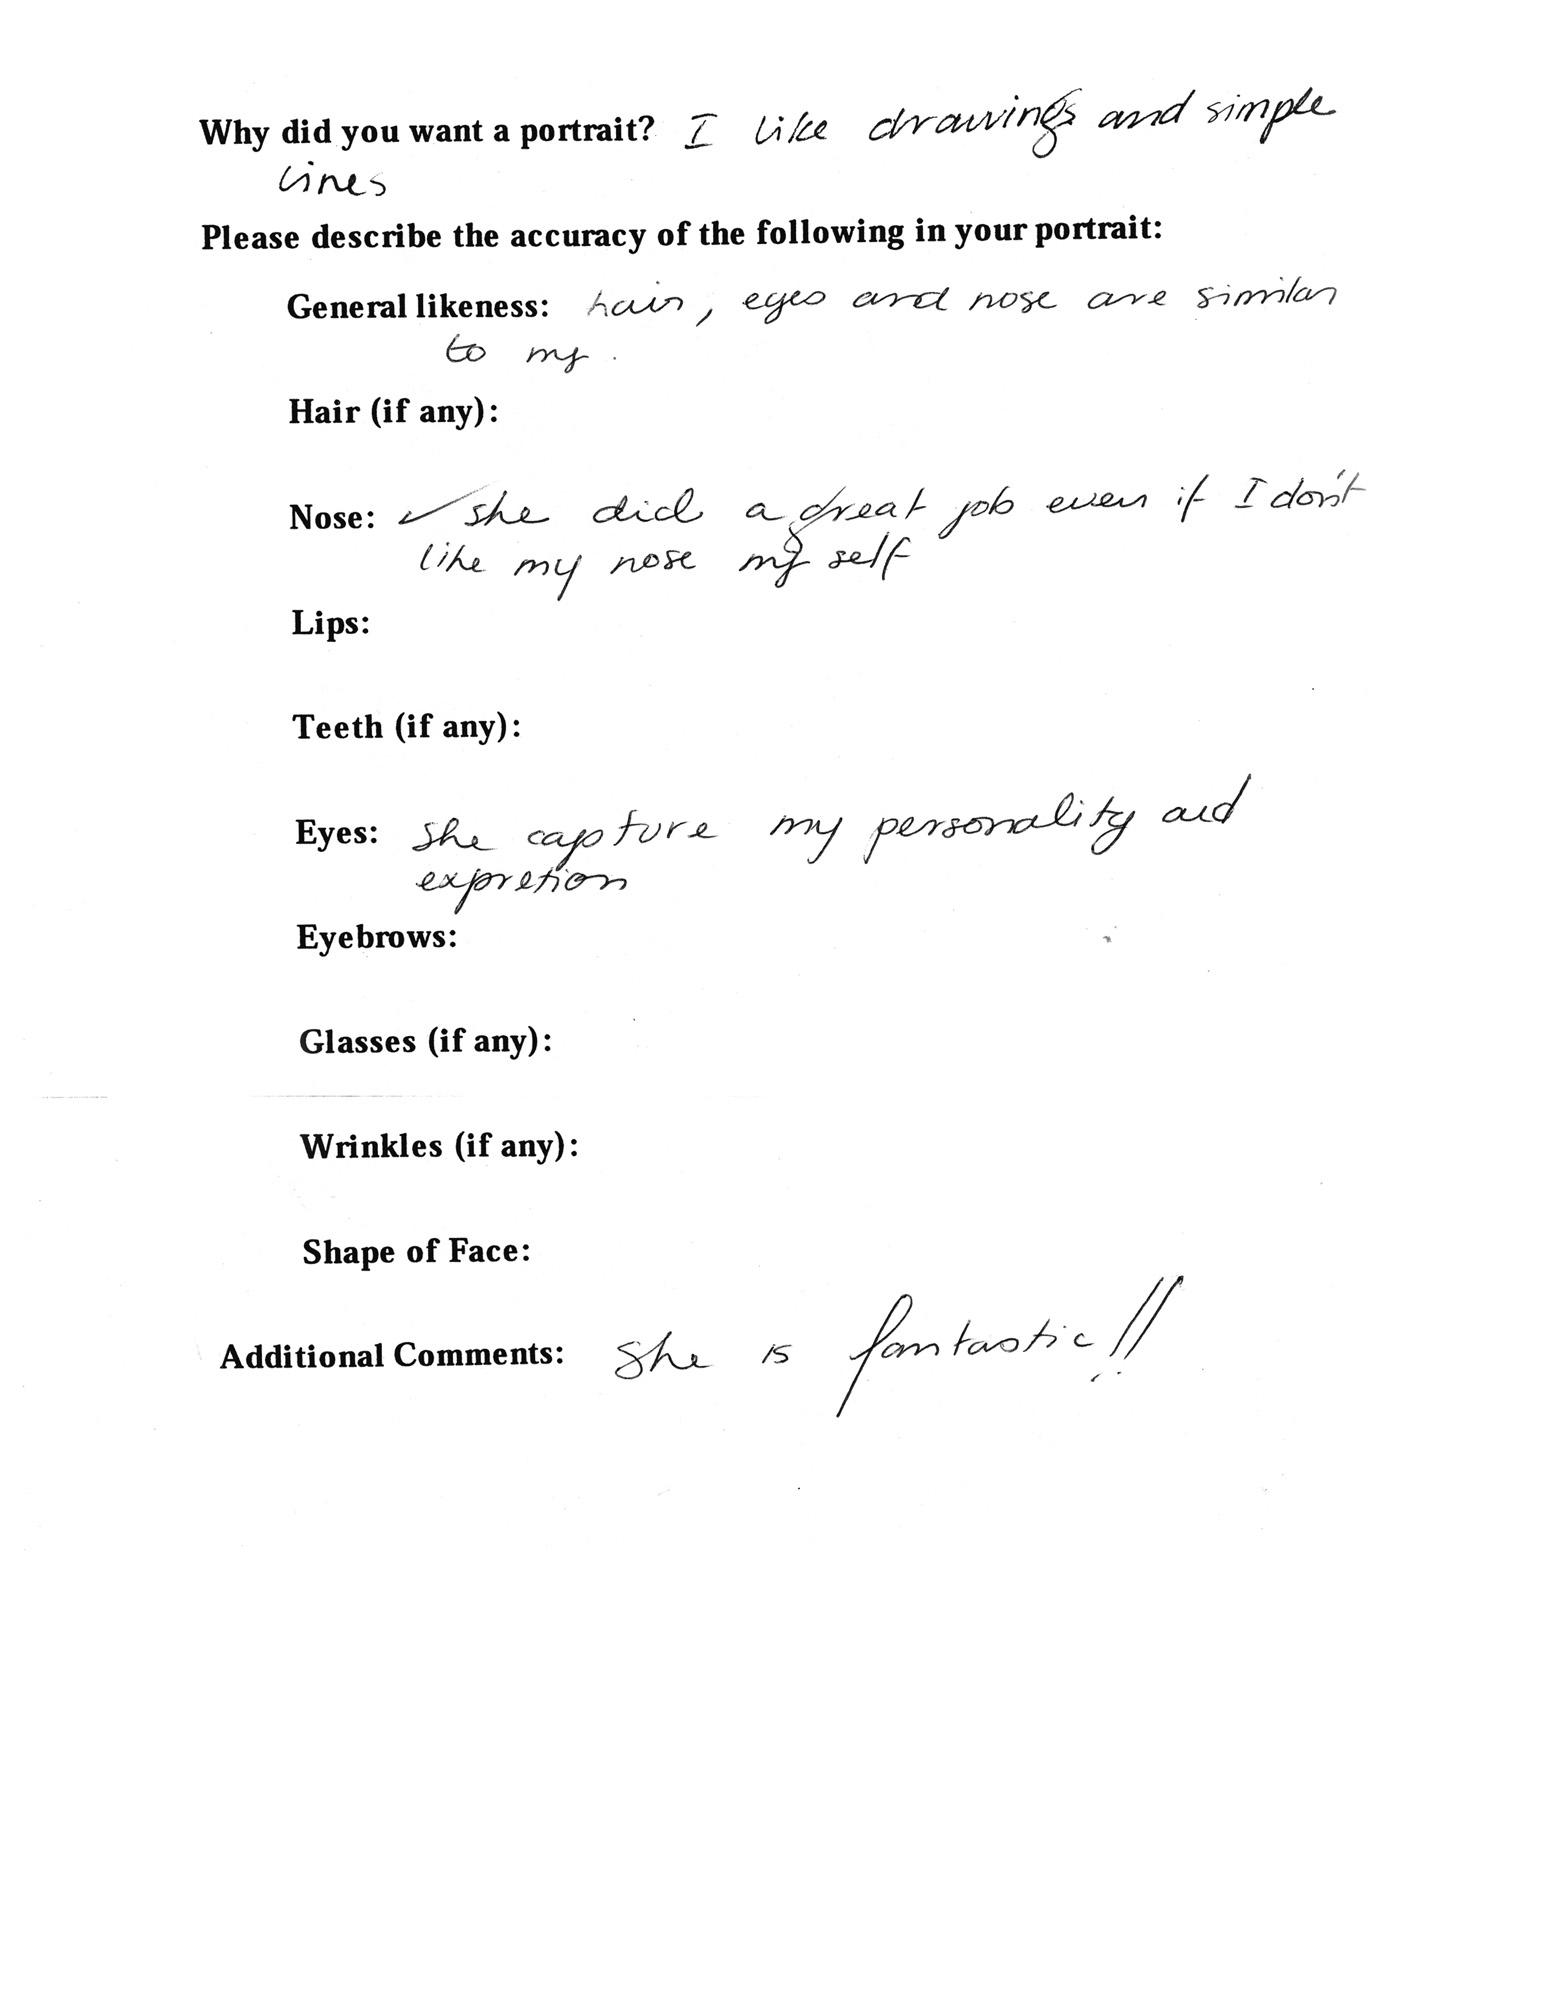 Why did you want a portrait? I like drawings and simple
lines
Please describe the accuracy of the following in your portrait:
General likeness: hair, eyes and nose are similar
to my.
Hair (if any):
Nose: ✓ she did a great job even if I don't
like my nose my self
Lips:
Teeth (if any):
Eyes: She capture my personality and
expretion
Eyebrows:
Glasses (if any):
Wrinkles (if any):
Shape of Face:
Additional Comments: She is fantastic!!